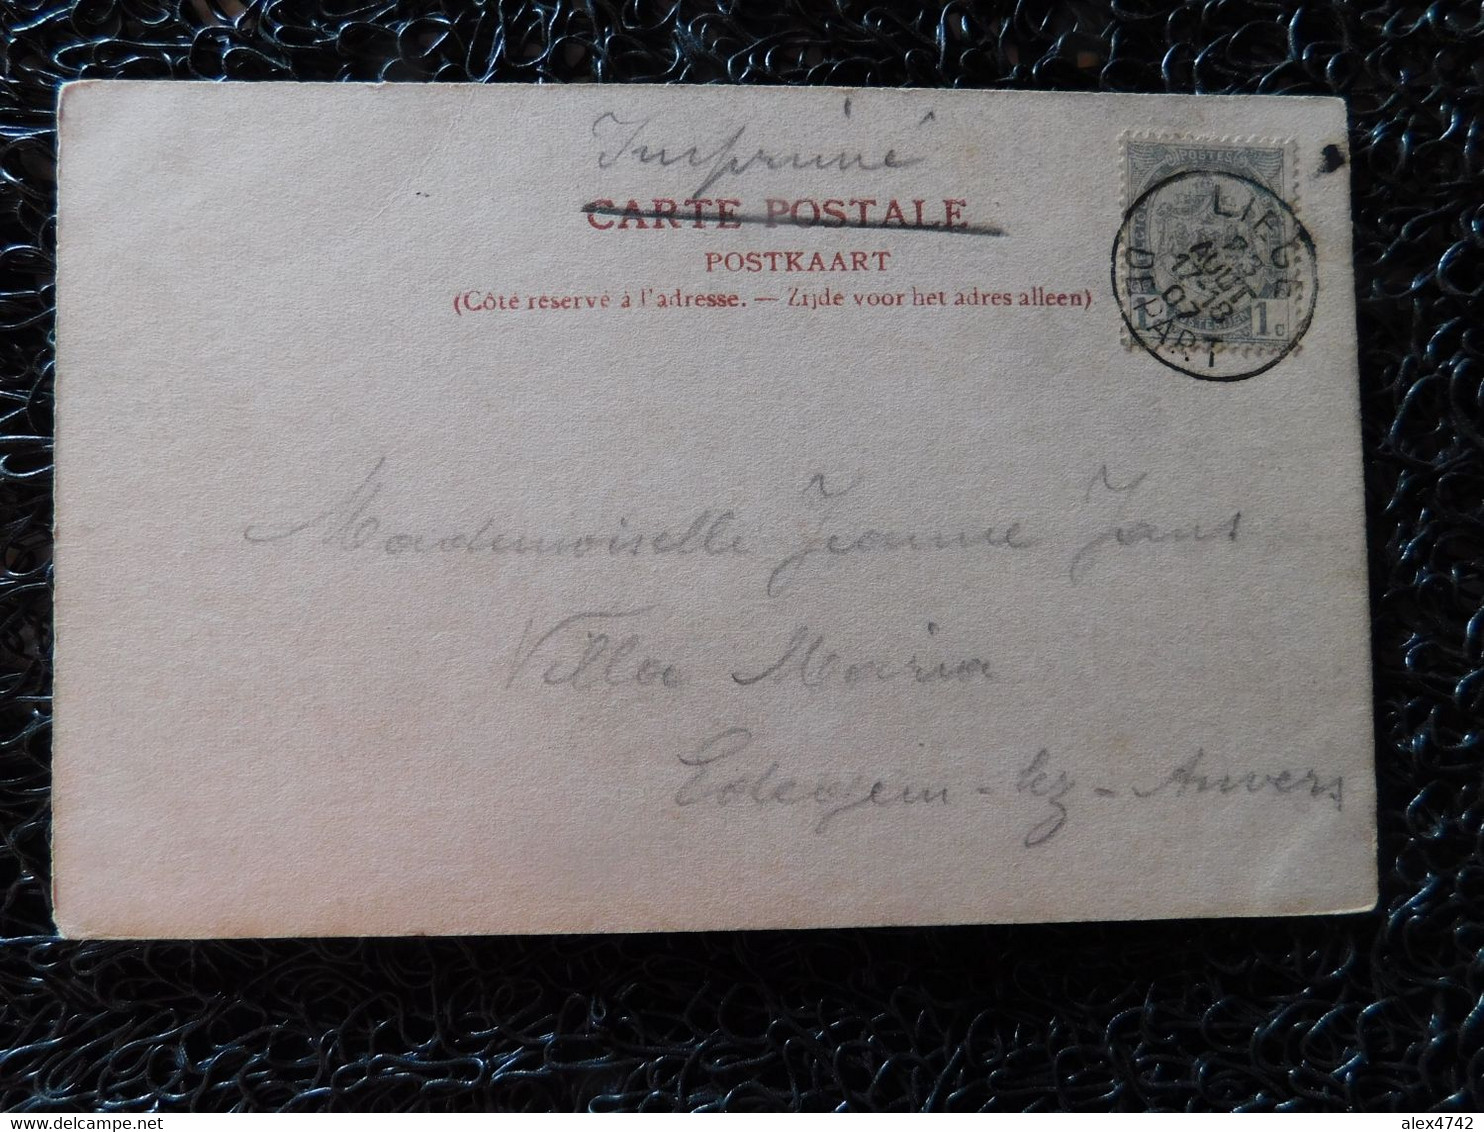 Imprimé
CARTE POSTALE
POSTKAART
(Côté réservé à l'adresse. — Zijde voor het adres alleen)
POSTES
1 1 c
LIEGE
23
AOUT
17-18
07
DEPART
Mademoiselle Jeanne Jans
Villa Maria
Edegem - lez - Anvers
alex4742